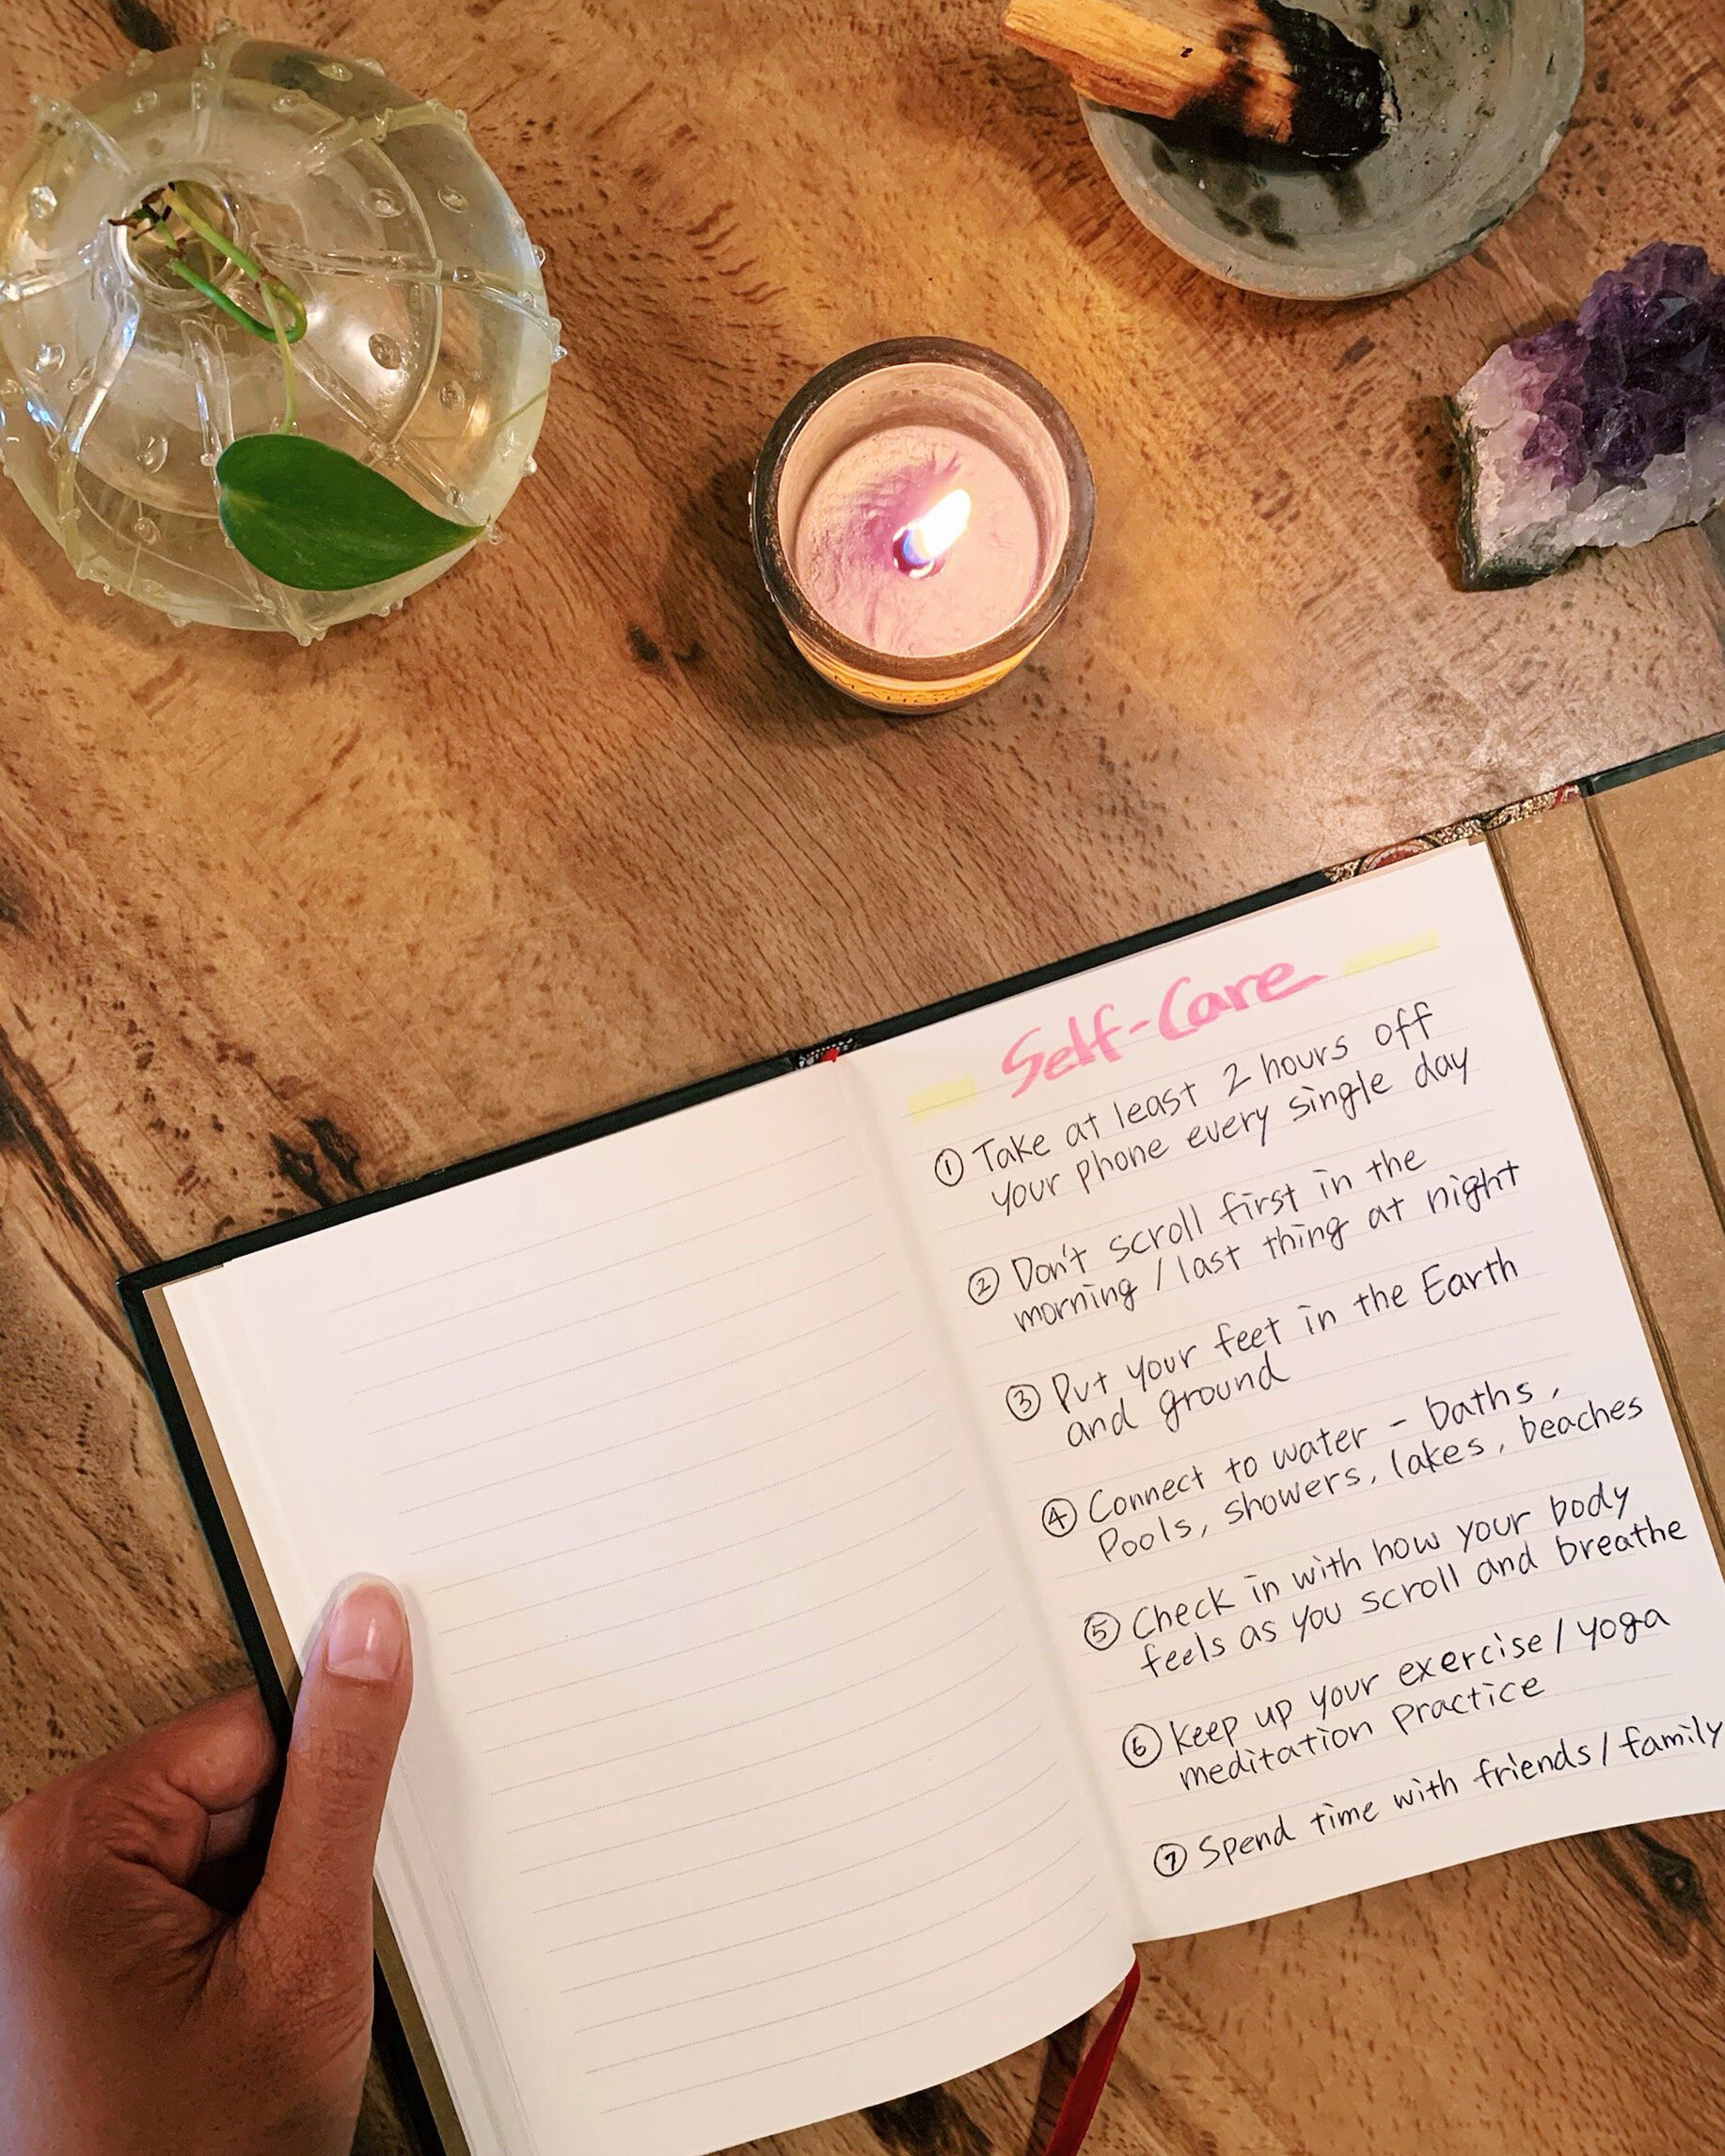 Self-Care
① Take at least 2 hours off
your phone every single day
② Don't scroll first in the
morning / last thing at night
③ Put your feet in the Earth
and ground
④ Connect to water - baths,
Pools, showers, lakes, beaches
⑤ Check in with how your body
feels as you scroll and breathe
⑥ Keep up your exercise / yoga
meditation practice
⑦ Spend time with friends / family